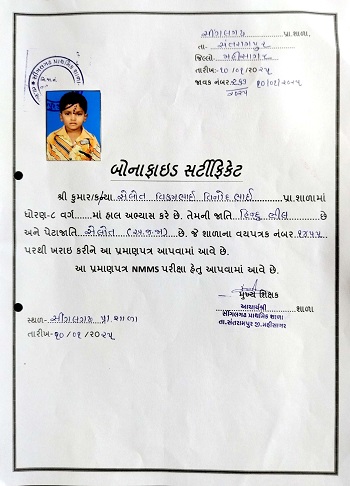 સીંગલગઢ પ્રા.શાળા,
તા- સંતરામપુર
જિલ્લો મહીસાગર
તારીખ:-૧૦/૦૧/૨૦૨૫
જાવક નંબર:- ૧૦/૦૧/૨૦૨૫
બોનાફાઇડ સર્ટીફિકેટ
શ્રી કુમાર/કન્યા સેલોત વિક્રમભાઈ પ્રા.શાળામાં
ધોરણ-૮ વર્ગ......માં હાલ અભ્યાસ કરે છે. તેમની જાતિ હિન્દુ ભીલ છે
અને પેટાજાતિ સેલોત (અ.જ.જા) છે. જે શાળાના વયપત્રક નંબર ૧૭૫૫
પરથી ખરાઇ કરીને આ પ્રમાણપત્ર આપવામાં આવે છે.
આ પ્રમાણપત્ર NMMS પરીક્ષા હેતુ આપવામાં આવે છે.
મુખ્ય શિક્ષક
આચાર્યશ્રી શાળા
સીંગલગઢ પ્રાથમિક શાળા
તા.સંતરામપુર જી.મહીસાગર
સ્થળ:- સીંગલગઢ પ્રા શાળા
તારીખ:-૧૦/૦૧/૨૦૨૫